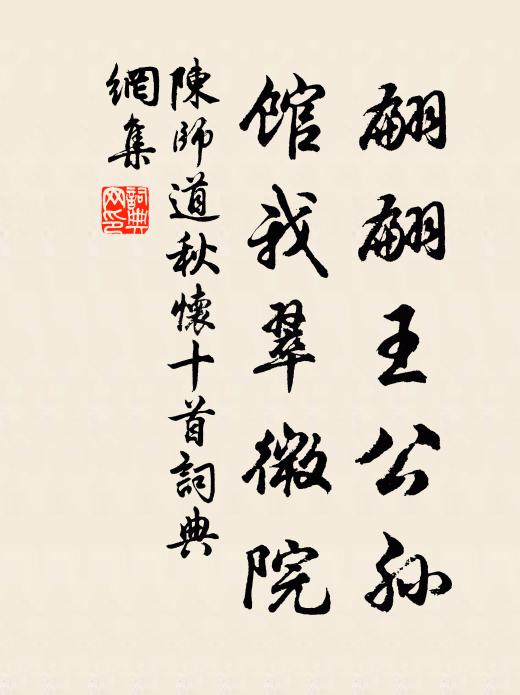 翩翩王公孙
馆我翠微院
陳師道秋懷十首詞典
網集
詞典
网印